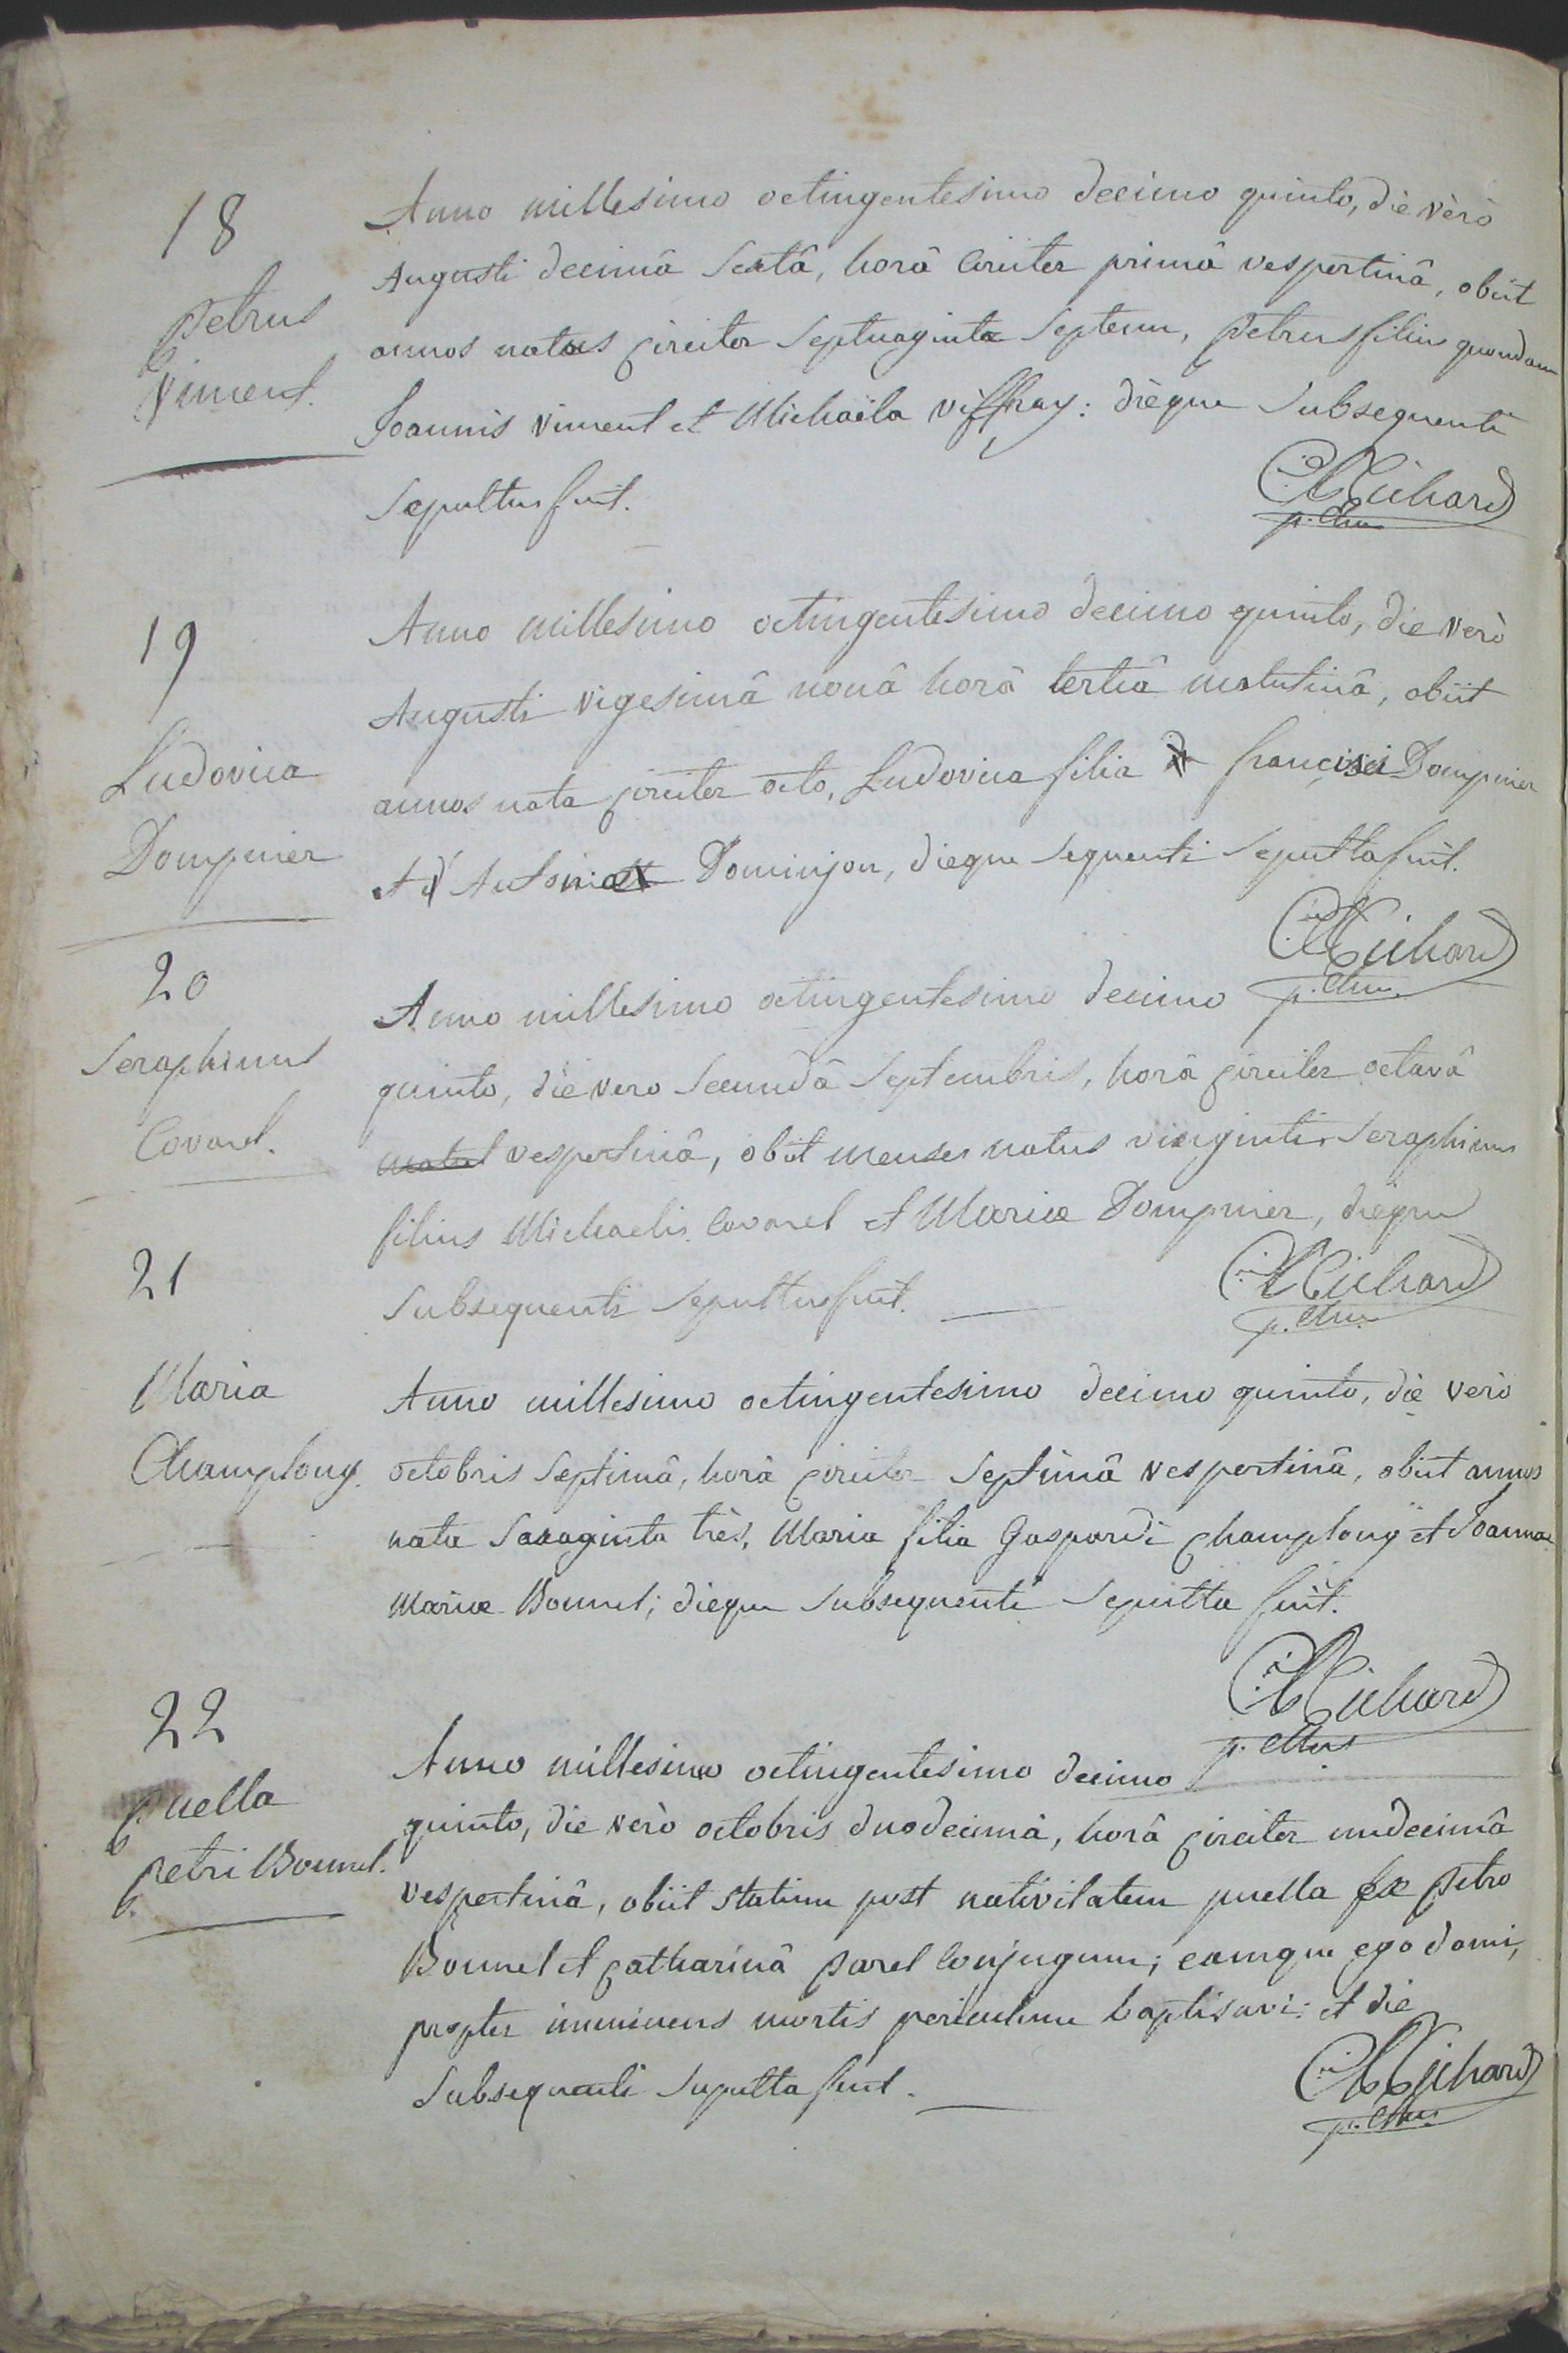 18
Petrus
Viment.
Anno millesimo octingentesimo decimo quinto, die vèrò
Augusti decimâ sextâ, horâ circiter primâ vespertinâ, obiit
annos natus circiter septuaginta septem, Petrus filius quondam
Joannis Viment et Michaëla Viffray: dièque subsequenti
sepultus fuit.
Richard
19
Ludovica
Dompnier
Anno millesimo octingentesimo decimo quinto, die verò
Augusti vigesimâ nonâ horâ tertiâ matutinâ, obiit
annos nata circiter octo, Ludovica filia francisci Dompnier
et Antoniæ Dominjon, dieque sequenti sepulta fuit.
Richard
20
Seraphinus
Covarel.
Anno millesimo octingentesimo decimo
quinto, die vero secundâ septembris, horâ circiter octavâ
vespertinâ, obiit menses natus viginti Seraphinus
filius Michaelis Covarel et Mariæ Dompnier, dieque
subsequenti sepultus fuit.
Richard
21
Maria
Champlong.
Anno millesimo octingentesimo decimo quinto, die verò
octobris septimâ, horâ circiter septimâ vespertinâ, obiit annos
nata sexaginta très, Maria filia Gaspardi Champlong et Joannæ
Mariæ Bonnel; dieque subsequenti sepulta fuit.
Richard
22
puella
petri Bonnel.
Anno millesimo octingentesimo decimo
quinto, die verò octobris duodecimâ, horâ circiter undecimâ
vespertinâ, obiit statim post nativitatem puella ex Petro
Bonnel et Catharinâ Parel conjugum; eamque ego domi,
propter imminens mortis periculum baptisavi: et die
subsequenti sepulta fuit.
Richard